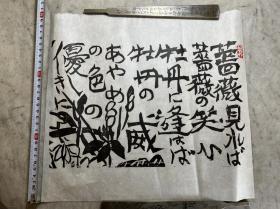 薔薇見れば
薔薇の笑ひ
牡丹に逢はば
牡丹の威
あやめの
の色の
憂